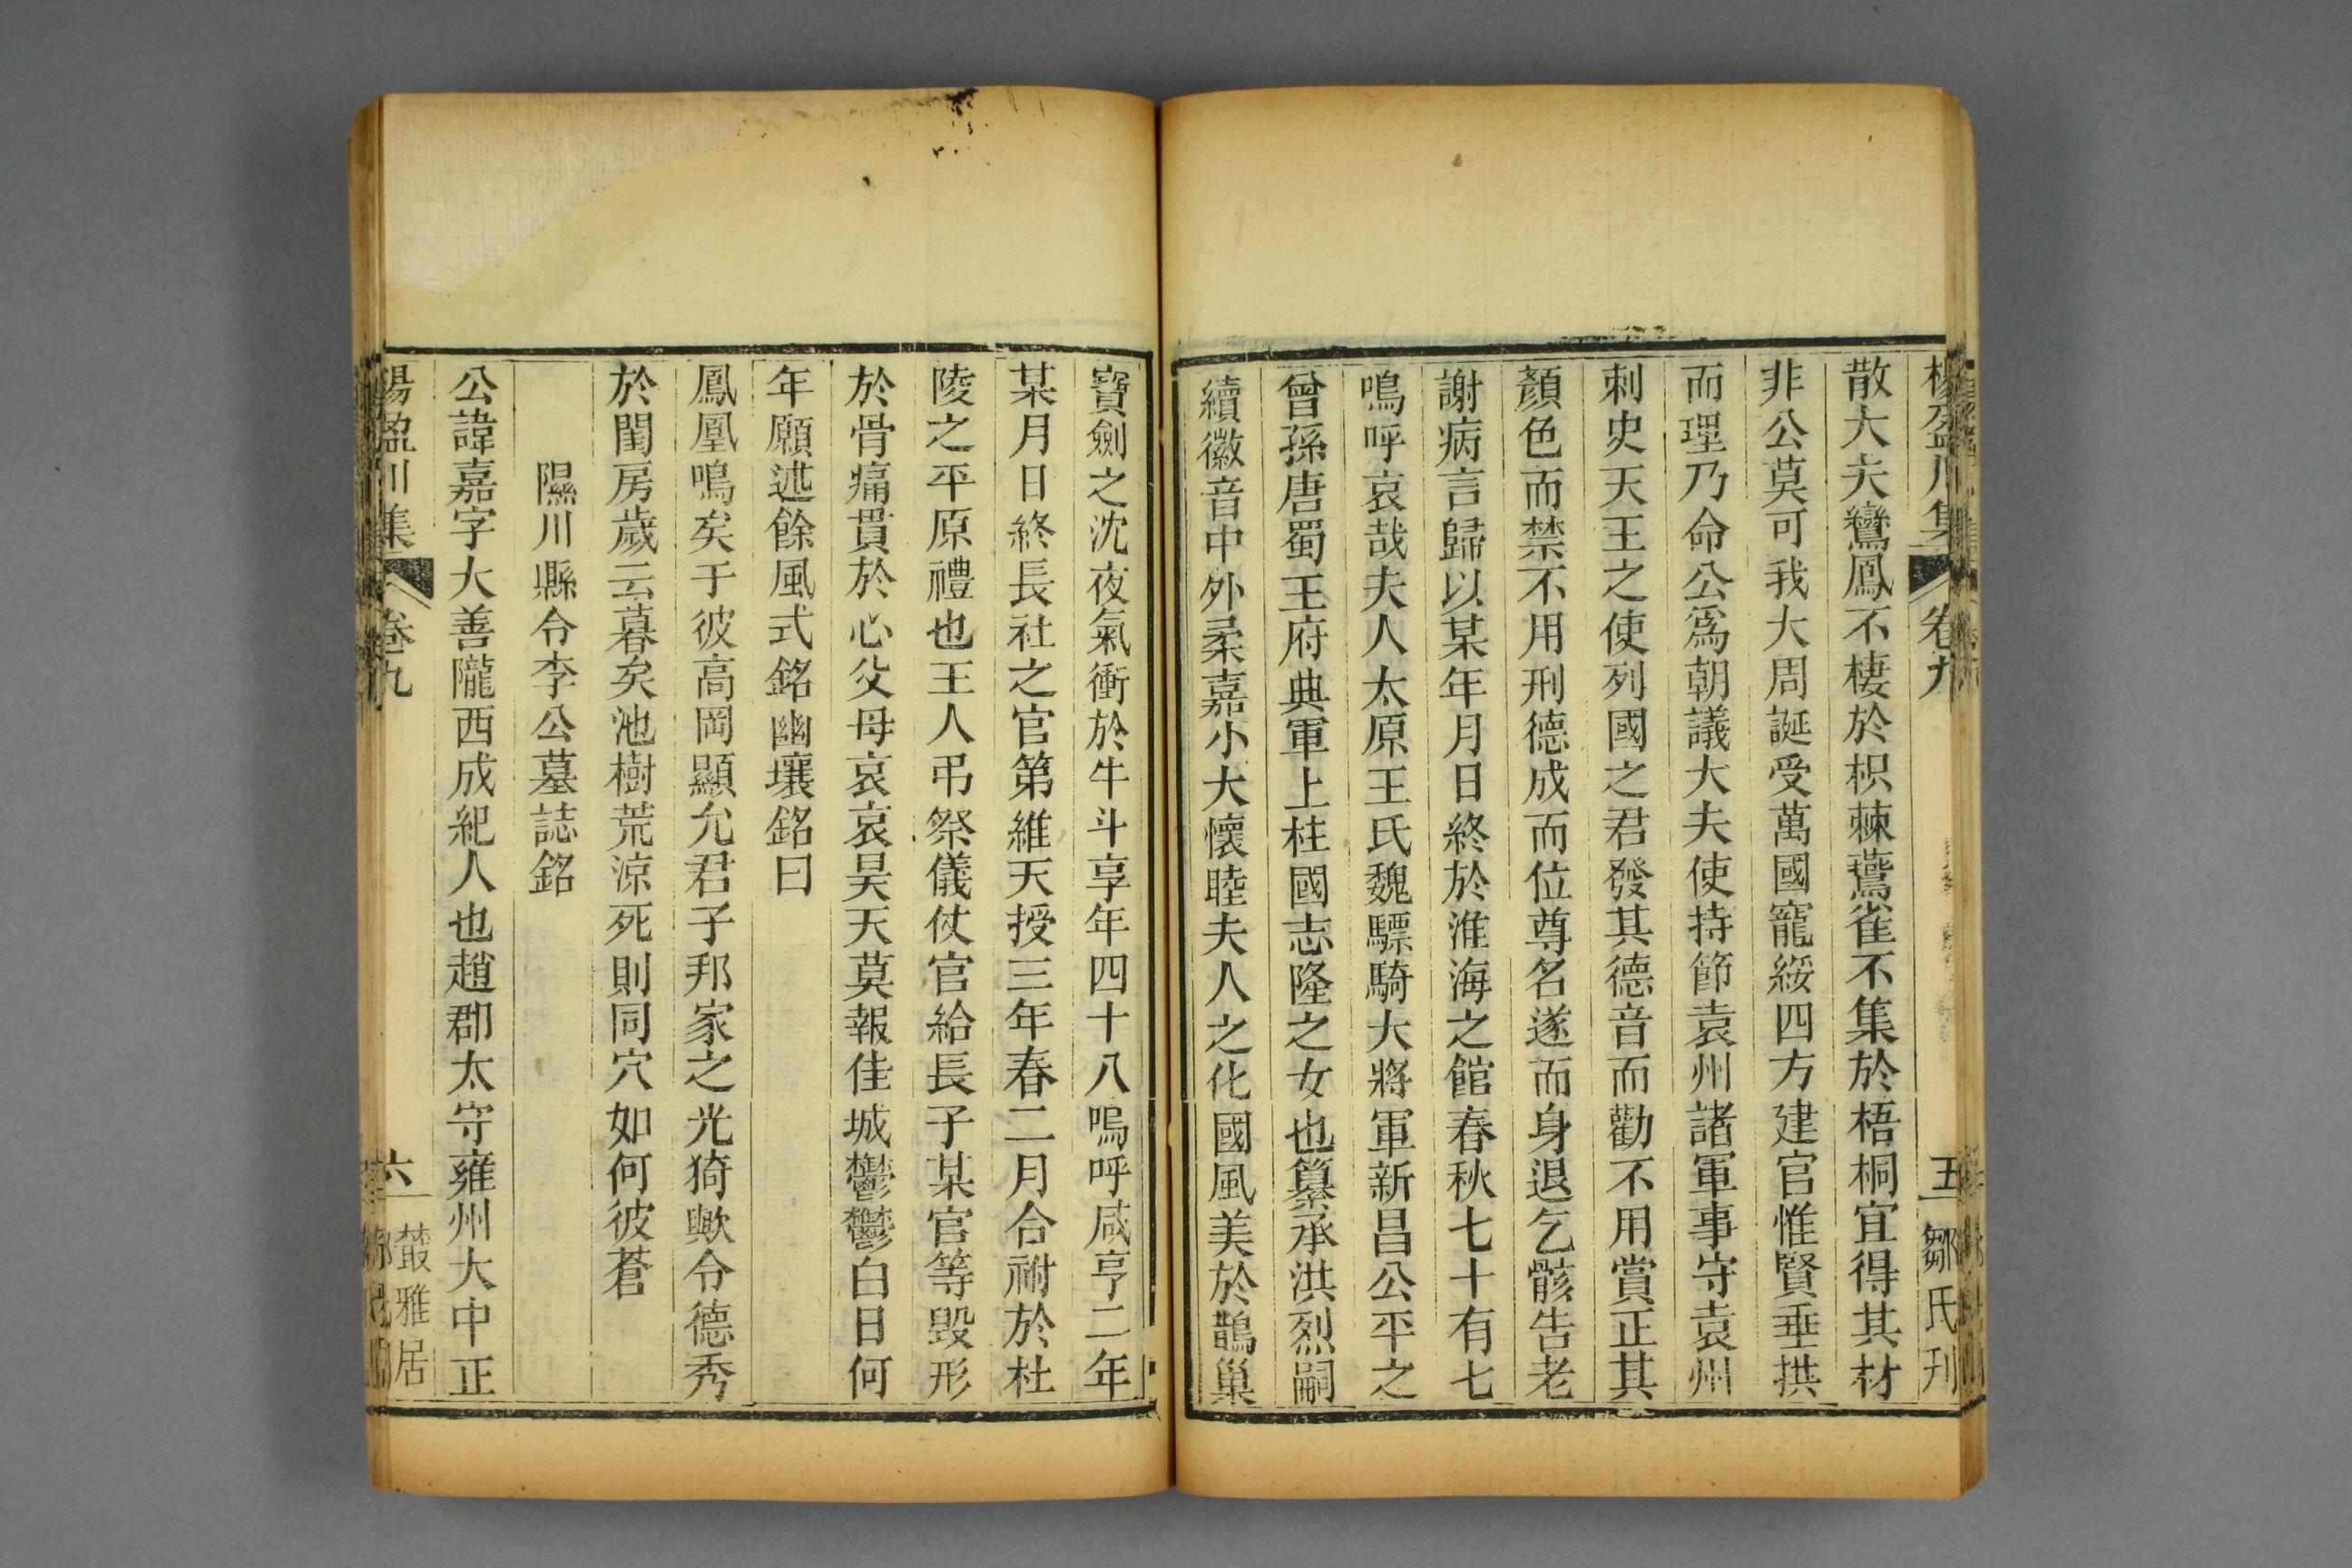 楊盈川集 卷九 五 鄒氏刊
散大夫鸞鳳不棲於枳棘鷰雀不集於梧桐宜得其材
非公莫可我大周誕受萬國寵綏四方建官惟賢垂拱
而理乃命公爲朝議大夫使持節袁州諸軍事守袁州
刺史天王之使列國之君發其德音而勸不用賞正其
顏色而禁不用刑德成而位尊名遂而身退乞骸告老
謝病言歸以某年月日終於淮海之館春秋七十有七
鳴呼哀哉夫人太原王氏魏驃騎大將軍新昌公平之
曾孫唐蜀王府典軍上柱國志隆之女也纂承洪烈嗣
續徽音中外柔嘉小大懷睦夫人之化國風美於鵲巢
寶劍之沈夜氣衝於牛斗享年四十八嗚呼咸亨二年
某月日終長社之官第維天授三年春二月合祔於杜
陵之平原禮也王人弔祭儀仗官給長子某官等毀形
於骨痛貫於心父母哀哀昊天莫報佳城鬱鬱白日何
年願述餘風式銘幽壤銘曰
鳳凰鳴矣于彼高岡顯允君子邦家之光猗歟令德秀
於閨房歲云暮矣池樹荒涼死則同穴如何彼蒼
隰川縣令李公墓誌銘
公諱嘉字大善隴西成紀人也趙郡太守雍州大中正
楊盈川集 卷九 六 叢雅居